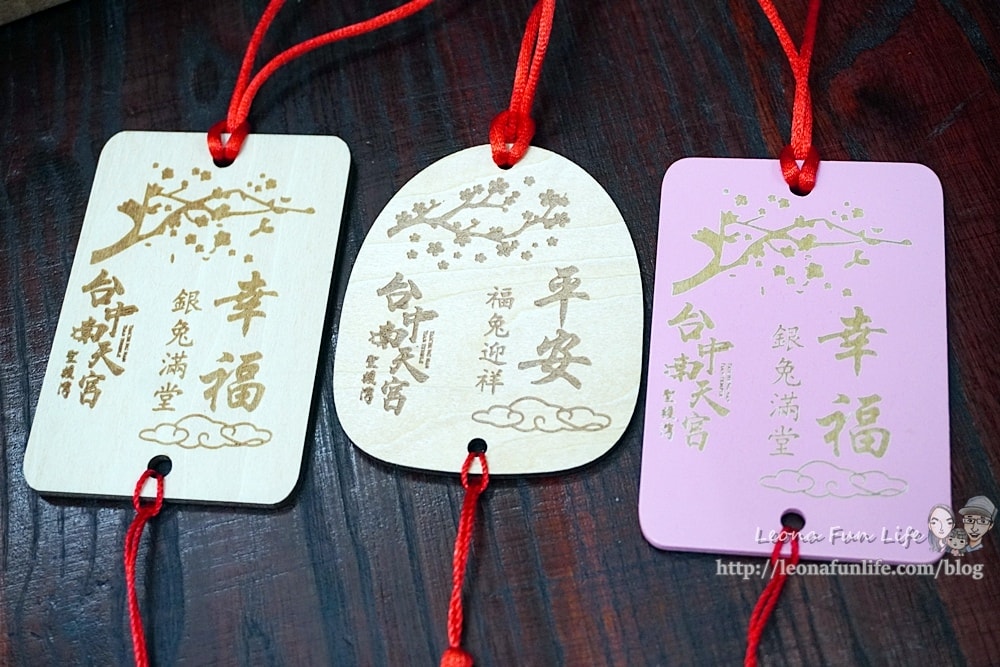 幸福
銀兔滿堂
台中
南天宮
平安
福兔迎祥
台中
南天宮
幸福
銀兔滿堂
台中
南天宮
Leona Fun Life
http://leonafunlife.com/blog